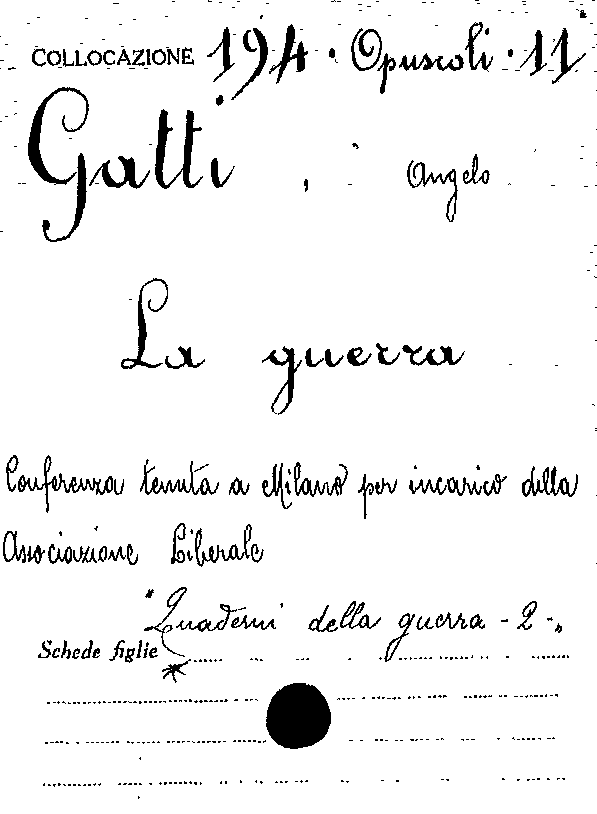 COLLOCAZIONE 194 · Opuscoli · 11
Gatti, Angelo
La guerra
Conferenza tenuta a Milano per incarico della
Associazione Liberale
"Quaderni della guerra - 2 -"
Schede figlie